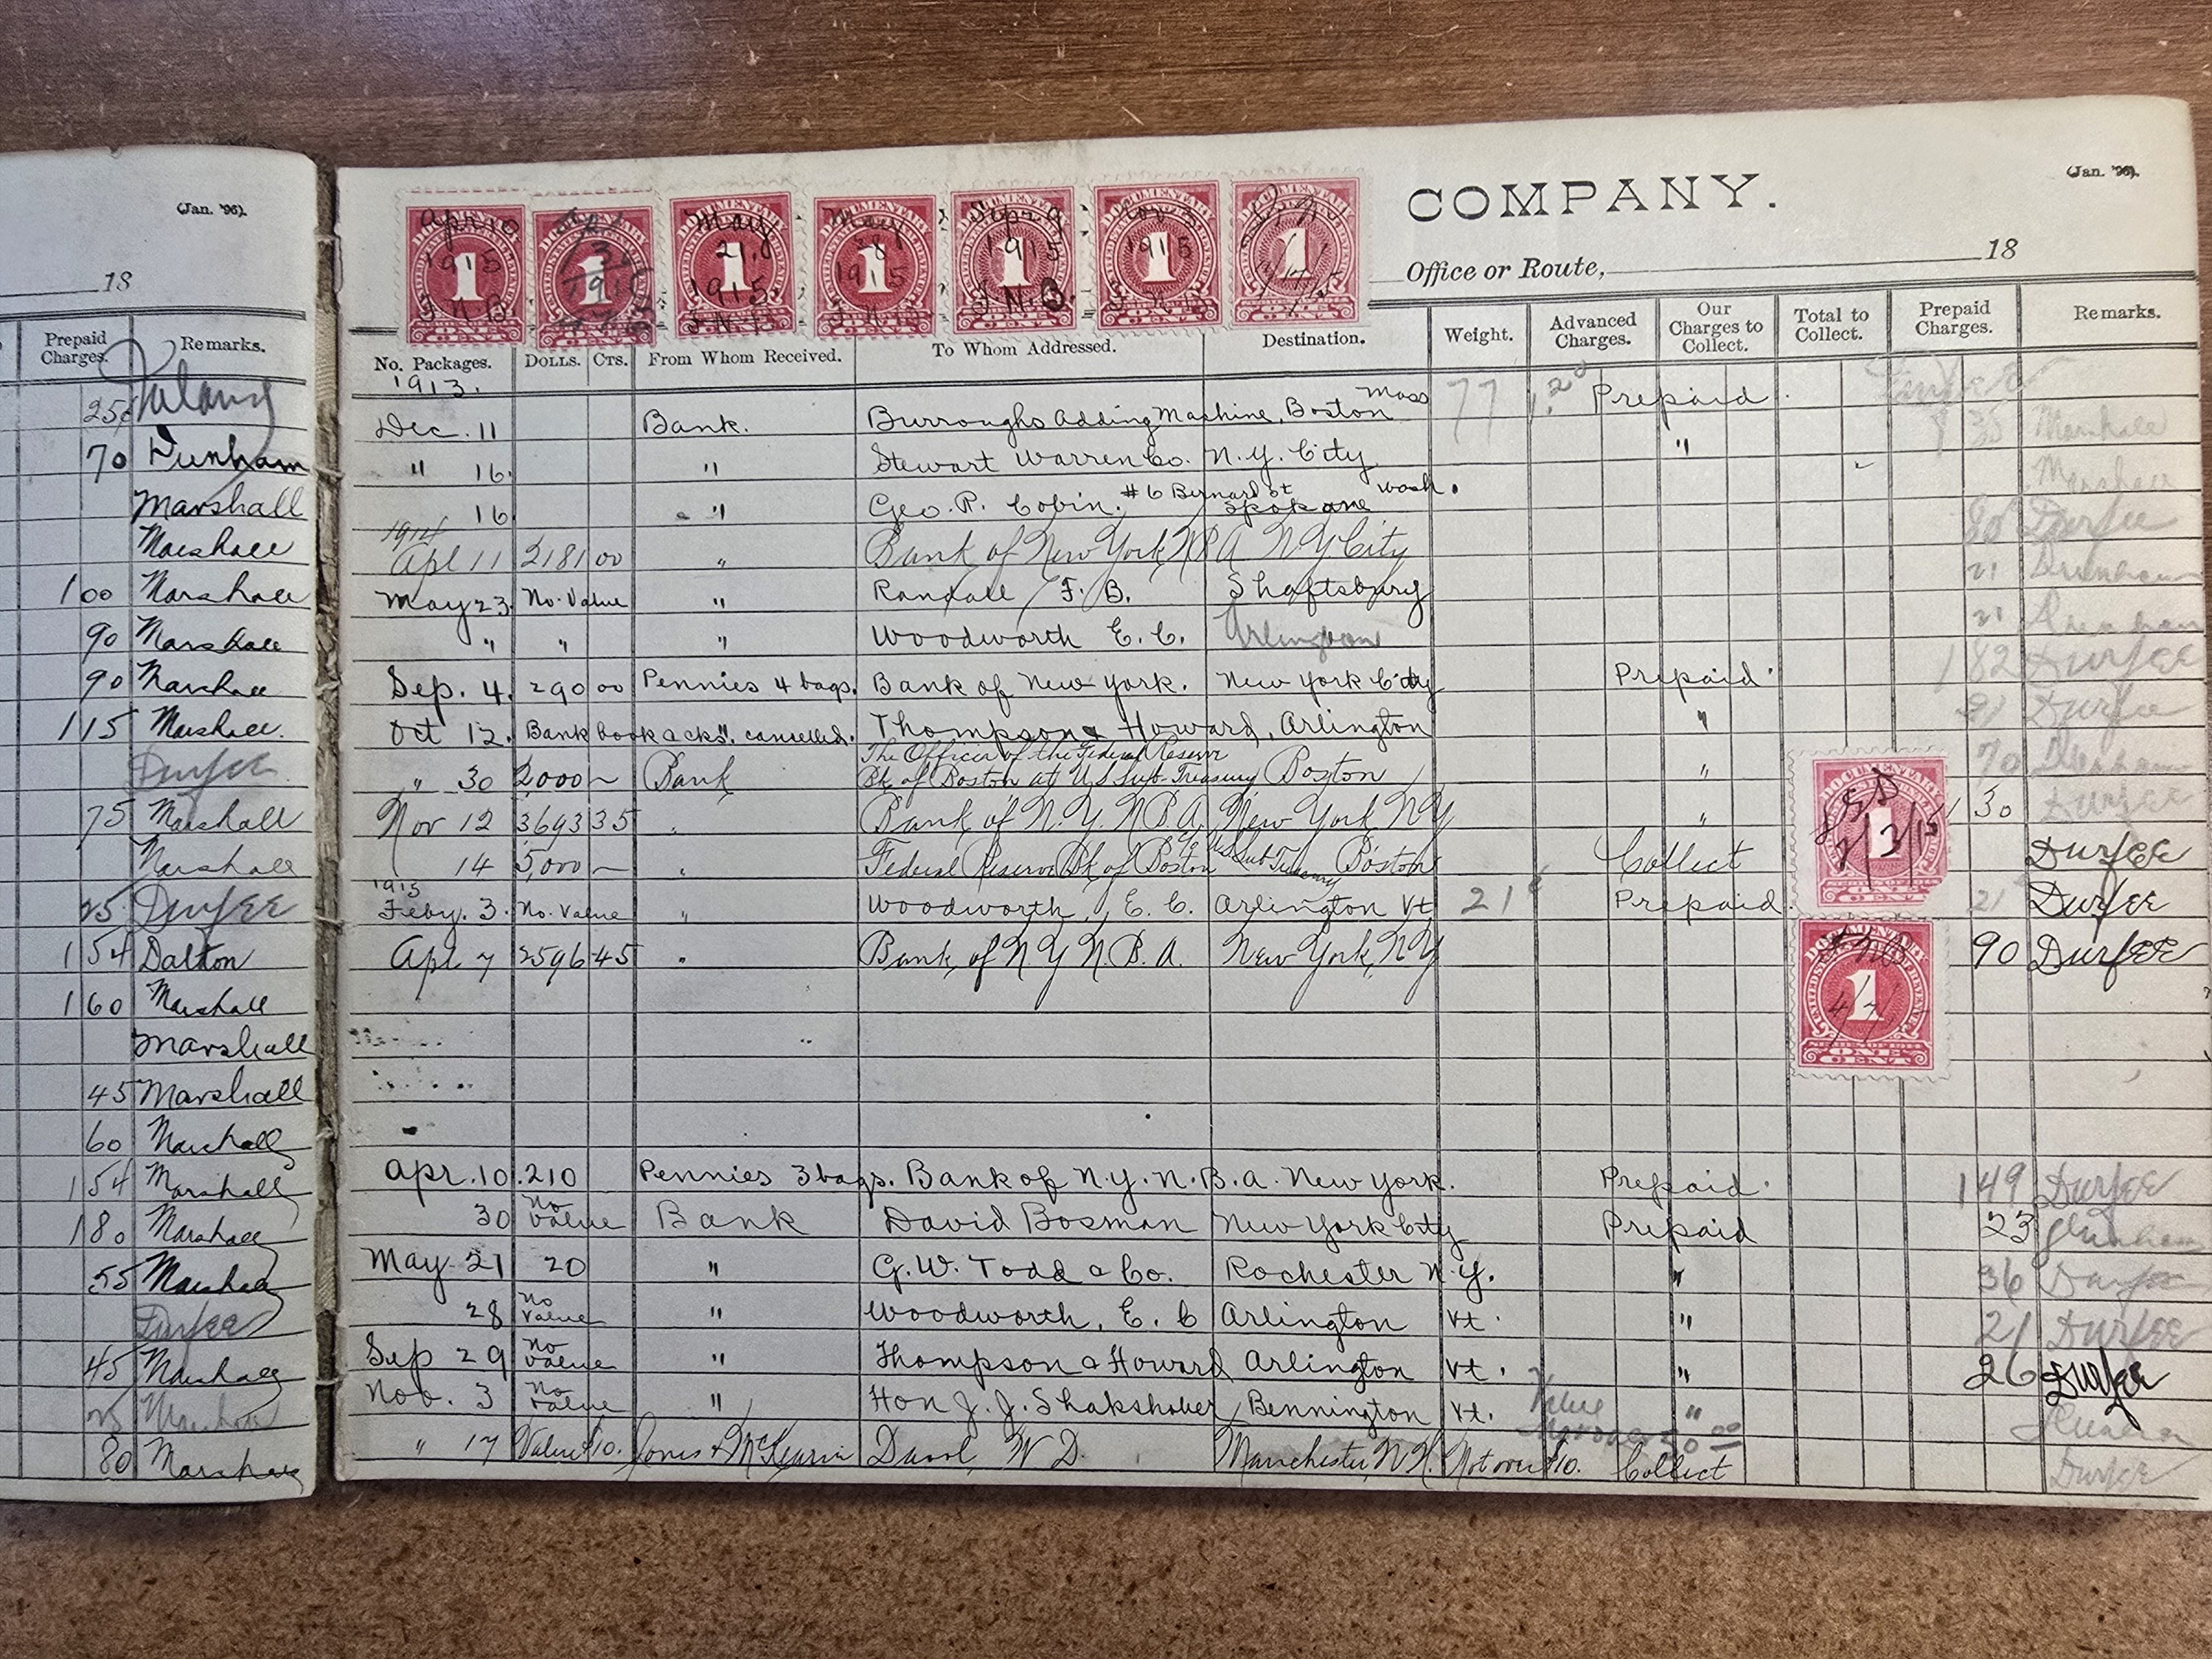 (Jan. '96).
18
Prepaid Charges. Remarks.
25¢
70 Dunham
Marshall
Marshall
100 Marshall
90 Marshall
90 Marshall
115 Marshall.
Durfee
75 Marshall
Marshall
25 Durfee
154 Dalton
160 Marshall
Marshall
45 Marshall
60 Marshall
154 Marshall
180 Marshall
55 Marshall
Durfee
45 Marshall
25 Marshall
80 Marshall
COMPANY.
(Jan. '96).
Office or Route, 18
Apr 10 1915 F N B
1
ONE CENT
1
May 21, 1915. F.N.B.
1
May 28 1915 F.N.B.
1
Sep. 9 1915 F.N.B.
1
Nov 3 1915 F.N.B.
1
DOCUMENTARY
1
No. Packages. DOLLS. CTS. From Whom Received. To Whom Addressed. Destination. Weight. Advanced Charges. Our Charges to Collect. Total to Collect. Prepaid Charges. Remarks.
1913.
Dec. 11 Bank. Burroughs Adding Machine, Boston Mass 77 Prepaid.
" 16. " Stewart Warren Co. N.Y. City " 35 Marshall
16 " Geo. R. Cobin. #6 Bernard st Spokane Wash. Marshall
1914
Apl 11 2181 00 " Bank of New York N B A N Y City 80 Durfee
May 23. No. Value " Randall, F. B. Shaftsbury 21 Dunham
" " " Woodworth E. C. Arlington 21 Dunham
Sep. 4. 290 00 Pennies 4 bags. Bank of New York. New York City Prepaid. 182 Durfee
Oct 12. Bank book acks. cancelled. Thompson & Howard, Arlington " 21 Durfee
" 30 2,000 ~ Bank The Officer of the Federal Reserve Bk of Boston at U S Sub-Treasury Boston " 70 Dunham
Nov 12 3693 35 " Bank of N.Y. N B A, New York N Y " 130 Durfee
14 5,000 ~ " Federal Reserve Bk of Boston US Sub Treasury Boston Collect Durfee
1915
Feby. 3. No. Value " Woodworth, E. C. Arlington Vt 21¢ Prepaid. 21 Durfee
Apl 7 2596 45 " Bank of N Y N. B. A. New York, N Y 90 Durfee
DOCUMENTARY
1
F N B
4/7/15
ONE CENT
Apr. 10. 210 Pennies 3 bags. Bank of N.Y. N.B.A. New York. Prepaid. 149 Durfee
30 No Value Bank David Bosman New York City Prepaid 23 Dunham
May 21 20 " G. W. Todd & Co. Rochester N.Y. " 36 Durfee
28 No Value " Woodworth, E. C Arlington Vt. " 21 Durfee
Sep 29 No Value " Thompson & Howard Arlington Vt. " 26 Durfee
Nov. 3 No Value " Hon J. J. Shakshober, Bennington Vt. Value "
" 17 Value $10. Manchester, N.H. Not over $10. Collect Durfee